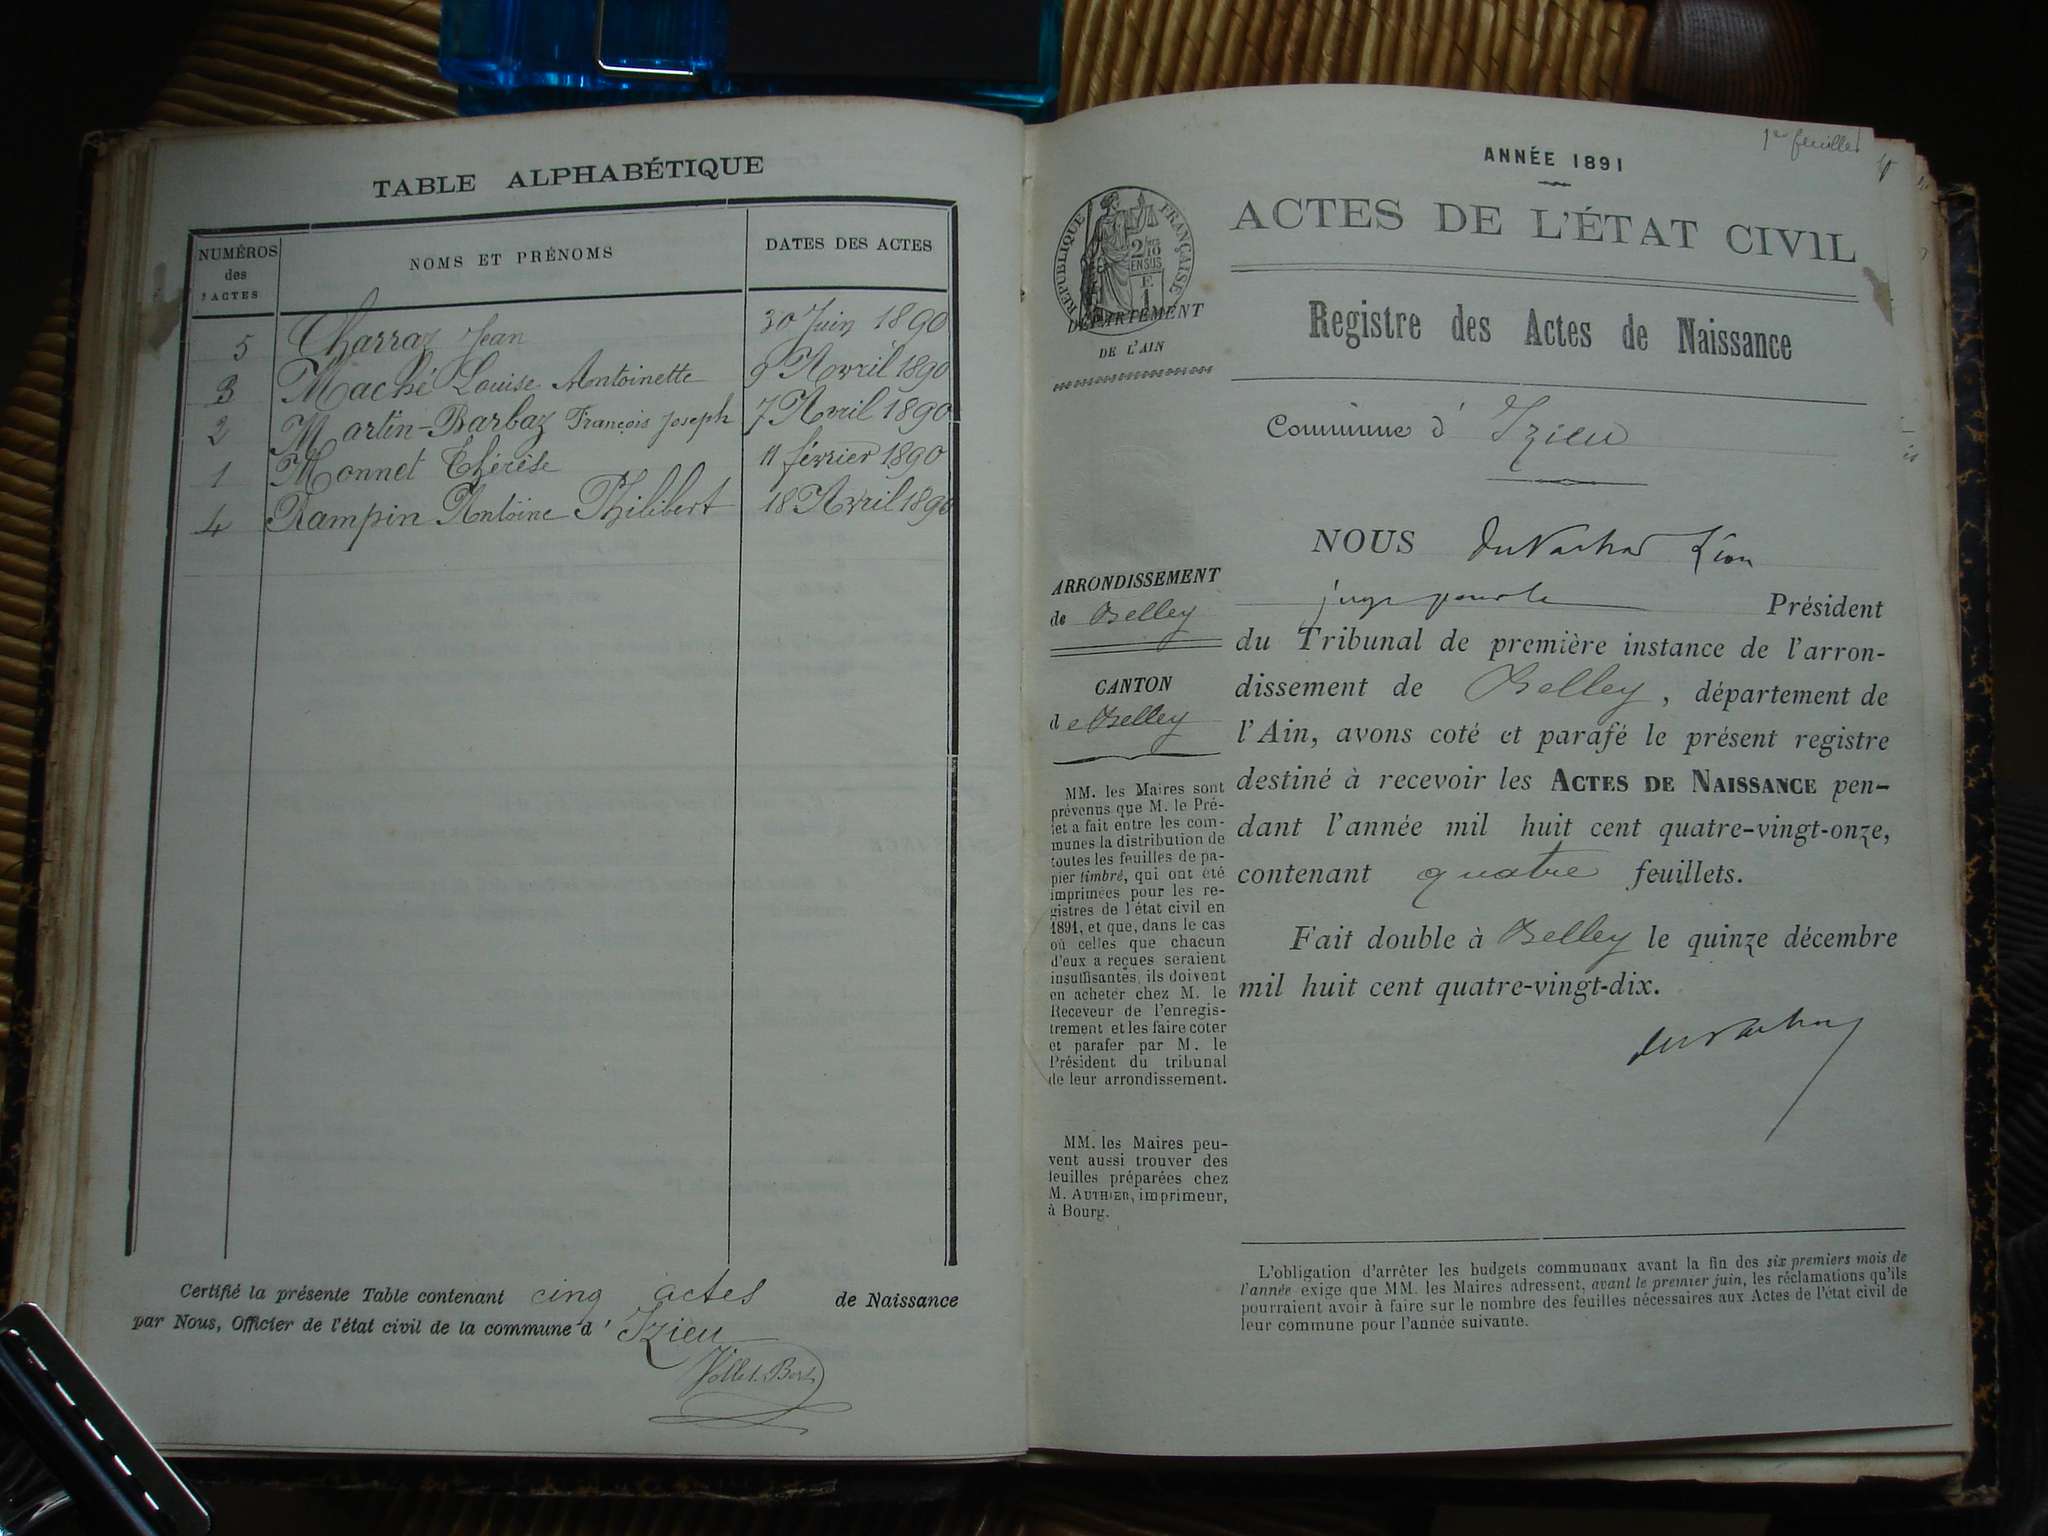 TABLE ALPHABÉTIQUE
NUMÉROS des ACTES
NOMS ET PRÉNOMS
DATES DES ACTES
5 Charraz Jean 30 Juin 1890
3 Maché Louise Antoinette 9 Avril 1890
2 Martin-Barbaz François Joseph 7 Avril 1890
1 Monnet Thérèse 11 février 1890
4 Rampin Antoine Philibert 18 Avril 1890
Certifié la présente Table contenant cinq actes de Naissance
par Nous, Officier de l'état civil de la commune d' Izieu
1er feuillet
ANNÉE 1891
ACTES DE L'ÉTAT CIVIL
RÉPUBLIQUE FRANÇAISE
2/10 EN SUS
E
1
DÉPARTEMENT
DE L'AIN
Registre des Actes de Naissance
Commune d' Izieu
ARRONDISSEMENT
de Belley
CANTON
de Belley
MM. les Maires sont
prévenus que M. le Pré-
fet a fait entre les com-
munes la distribution de
toutes les feuilles de pa-
pier timbré, qui ont été
imprimées pour les re-
gistres de l'état civil en
1891, et que, dans le cas
où celles que chacun
d'eux a reçues seraient
insuffisantes, ils doivent
en acheter chez M. le
Receveur de l'enregis-
trement et les faire coter
et parafer par M. le
Président du tribunal
de leur arrondissement.
MM. les Maires peu-
vent aussi trouver des
feuilles préparées chez
M. AUTHIER, imprimeur,
à Bourg.
NOUS Léon
juge pour le Président
du Tribunal de première instance de l'arron-
dissement de Belley, département de
l'Ain, avons coté et parafé le présent registre
destiné à recevoir les ACTES DE NAISSANCE pen-
dant l'année mil huit cent quatre-vingt-onze,
contenant quatre feuillets.
Fait double à Belley le quinze décembre
mil huit cent quatre-vingt-dix.
L'obligation d'arrêter les budgets communaux avant la fin des six premiers mois de
l'année exige que MM. les Maires adressent, avant le premier juin, les réclamations qu'ils
pourraient avoir à faire sur le nombre des feuilles nécessaires aux Actes de l'état civil de
leur commune pour l'année suivante.